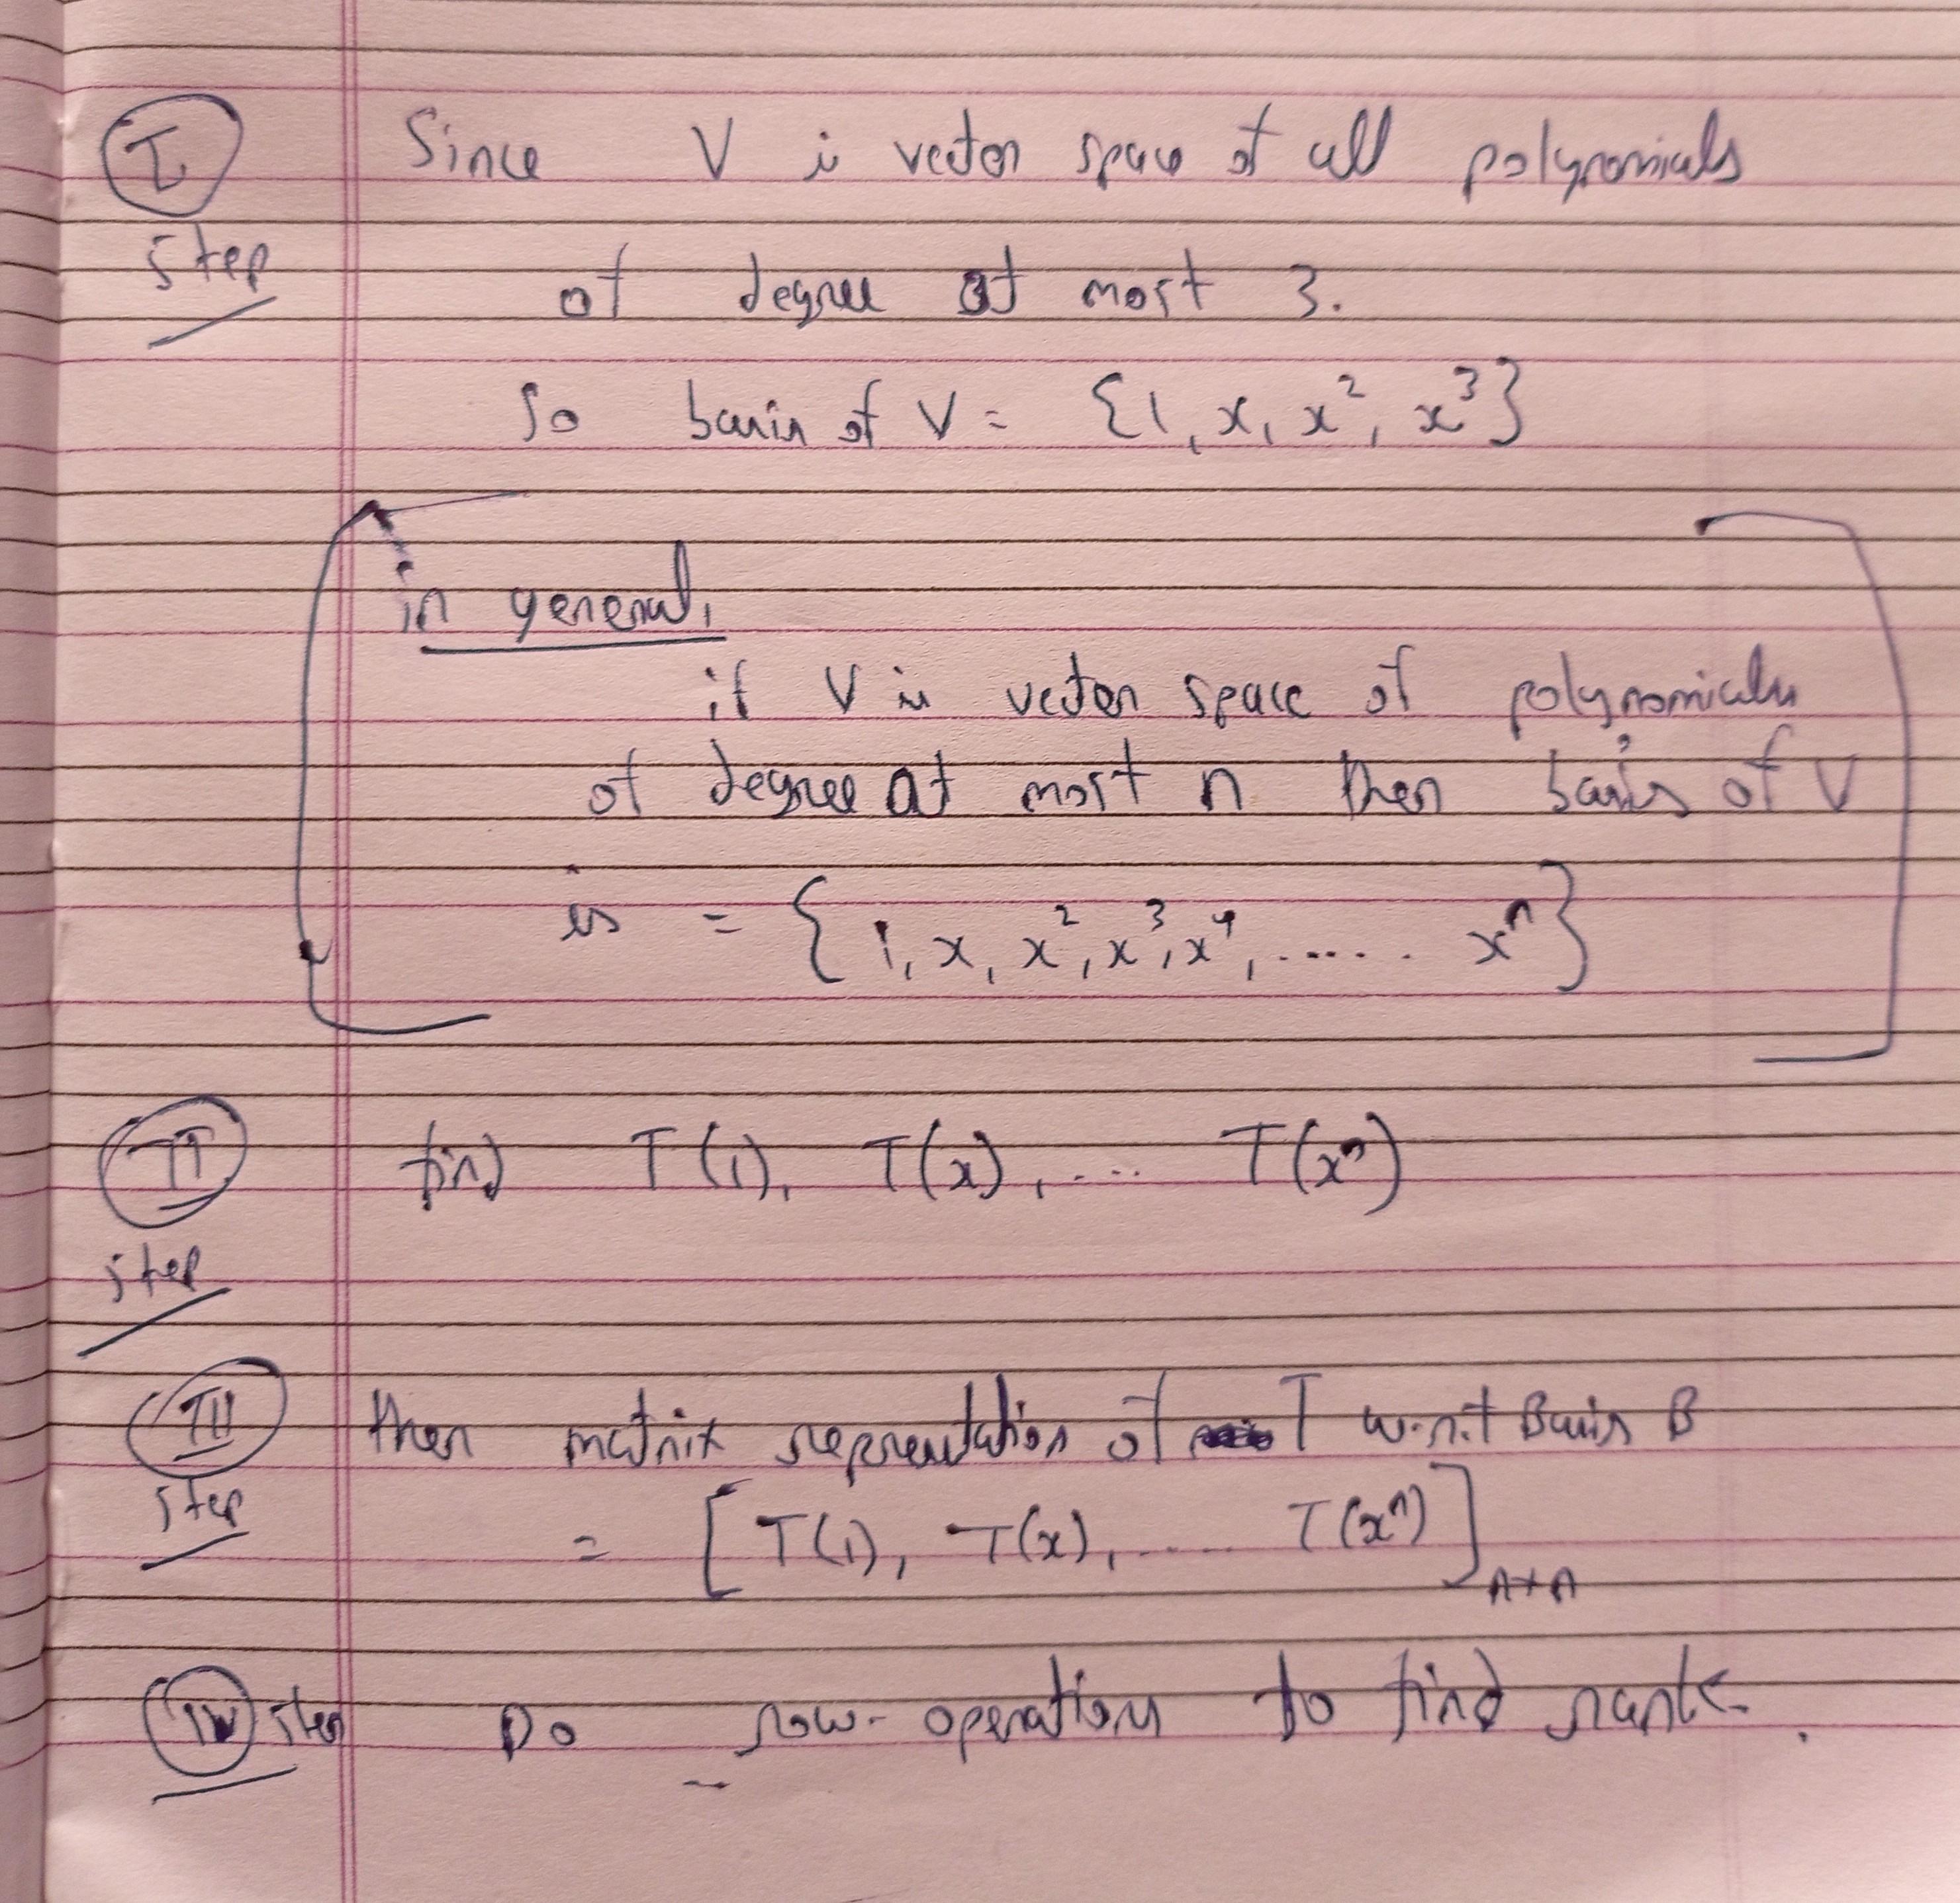 I Since V is vector space of all polynomials
step of degree at most 3.
So basis of V = {1, x, x², x³}
in general,
if V is vector space of polynomials
of degree at most n then basis of V
is = {1, x, x², x³, x⁴, ...... xⁿ}
II find T(1), T(x), .... T(xⁿ)
step
III then matrix representation of T w.r.t Basis B
step = [T(1), T(x), ..... T(xⁿ)]n×n
IV step Do row-operations to find rank.